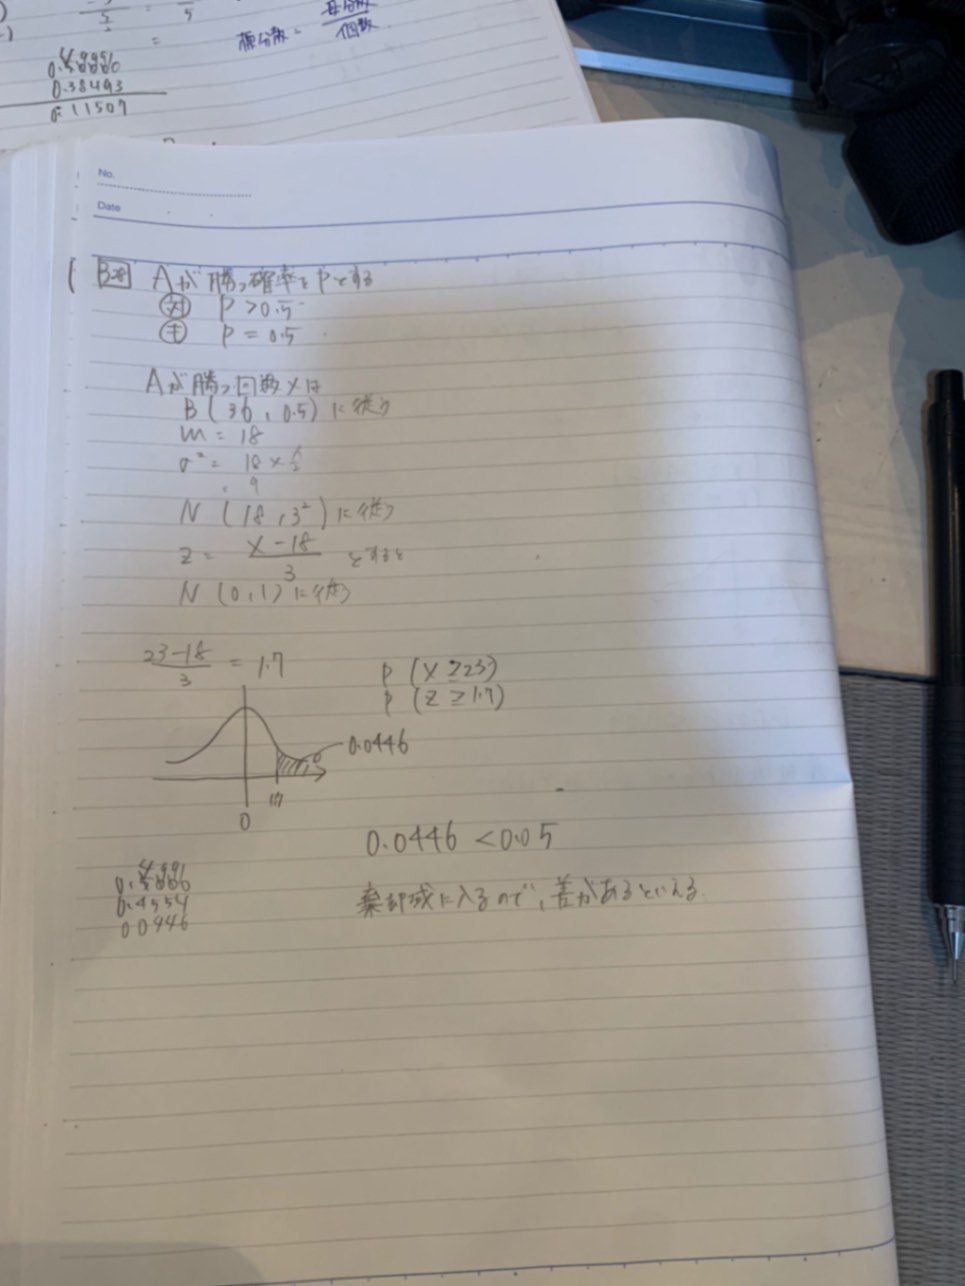 5
標分散 = 母分散/個数
0.38493
0.11507
No.
Date
B28 Aが勝つ確率をpとする
対 p > 0.5
主 p = 0.5
Aが勝つ回数Xは
B (36, 0.5) に従う
m = 18
σ² = 18 × 1/2
= 9
N (18, 3²) に従う
z = X-18/3 とすると
N (0, 1) に従う
23-18/3 = 1.7
p (X ≧ 23)
p (Z ≧ 1.7)
0.0446
1.7
0
0.0446 < 0.05
0.4554
0.0446
棄却域に入るので、差があるといえる.